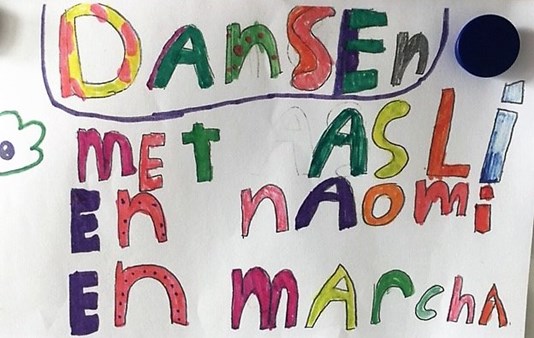 DANSEn
MET ASLi
En nAOmi
En mARchA